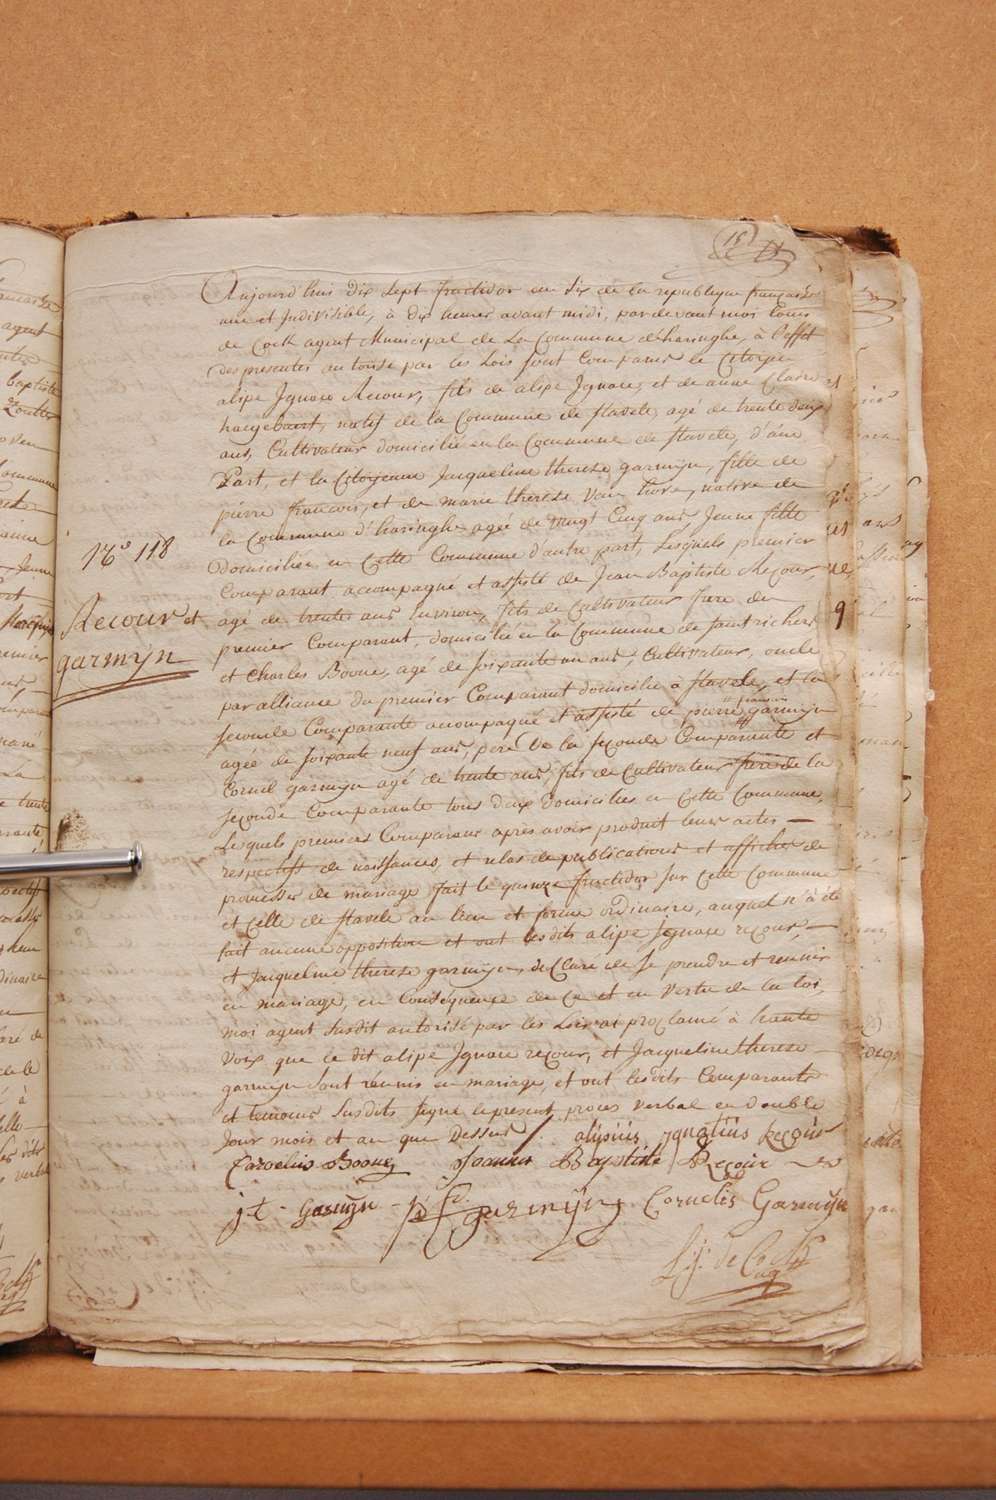 15
Aujourd'huis dix sept fructidor an six de la republique française
une et Indivisible, à dix heures avant midi, pardevant moi Louis
de Cock agent Municipal de la Commune d'haringhe, à l'effet
des presentes autorisé par les Lois sont Comparus le Citoyen
alipe Ignace Recour, fils de alipe Ignace, et de anne Claire
natif de la Commune de stavele, agé de trente deux
ans, Cultivateur domicilié en la Commune de stavele, d'une
Part, et la Citoyenne Jacqueline therese garmijn, fille de
pierre francois, et de marie therese Van hove, native de
la Commune d'haringhe agée de vingt Cinq ans Jeune fille
domiciliée en Cette Commune d'autre part, Lesquels premier
Comparant acompagné et assisté de Jean Baptiste Recour,
agé de trente ans environ, fils de Cultivateur frere du
premier Comparant, domicilié en la Commune de
et Charles Boone, agé de soixante un ans, Cultivateur, oncle
par alliance du premier Comparant domicilié à stavele, et la
seconde Comparante acompagné et assisté de pierre francois garmijn
agée de soixante neuf ans, pere de la seconde Comparante et
Cornil garmijn agé de trente ans, fils de Cultivateur frere de la
seconde Comparante tous deux domicilies en Cette Commune,
Lesquels premiers Comparans après avoir produit leurs actes
respectifs de naissances, et celas de publications et affiches de
promesses de mariage fait le quinze fructidor sur Cette Commune
et Celle de stavele au lieu et forme ordinaire, auquel n'à été
fait aucune opposition et ont lesdits alipe Ignace recour,
et Jacqueline therese garmijn, déClaré de se prendre et reunir
en mariage, en Conséquence de Ce et en vertu de la loi,
moi agent susdit autorisé par les Lois ai proclamé à haute
voix que le dit alipe Ignace recour, et Jacqueline therese
garmijn sont réunis en mariage, et ont lesdits Comparants
et temoins susdits signé le present proces verbal en double
Jour mois et an que Dessus.
N° 118
Recour et
garmijn
alipius ignatius Recour
Carolus Boone Joannes Baptiste Recour
j t Garmijn p f garmijn Cornelis Garmijn
L. J. de Cock